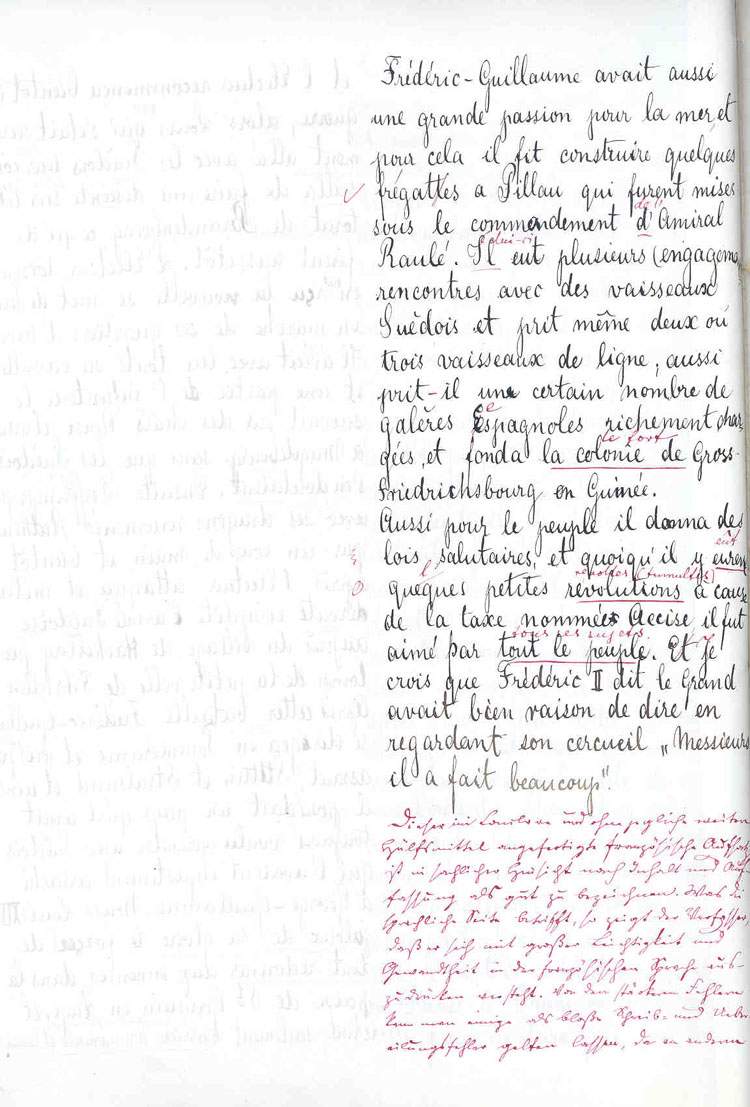 Frédéric-Guillaume avait aussi
une grande passion pour la mer, et
pour cela il fit construire quelques
frégattes a Pillau qui furent mises
de l'
sous le commendement d'Amiral
celui-ci
Raulé. Il eut plusieurs (engageme
rencontres avec des vaisseaux
Suèdois et prit même deux ou
trois vaisseaux de ligne, aussi
prit-il une certain nombre de
e
galères Espagnoles richement char-
le fort
gées, et fonda la colonie de Gross-
Friedrichsbourg en Guinée.
Aussi pour le peuple il donna des
eût
lois salutaires, et quoiqu'il y euren
l révoltes (tumultes)
queques petites révolutions à cause
de la taxe nommées Accise il fut
tous ses sujets.
aimé par tout le peuple. Et je
crois que Frédéric II dit le Grand
avait bèen raison de dire en
regardant son cercueil „Messieurs
il a fait beaucoup".
Dieser in Clausur und ohne jegliche weiteren
Hülfsmittel angefertigte französische Aufsatz
ist in sachlicher Hinsicht nach Inhalt und Auf-
fassung als gut zu bezeichnen. Was die
sprachliche Seite betrifft, so zeigt der Verfasser,
daß er sich mit großer Leichtigkeit und
Gewandtheit in der französischen Sprache aus-
zudrücken versteht. Von den stärkern Fehlern
kann man einige als bloße Schreib- und Ueber-
eilungsfehler gelten lassen, da an anderen